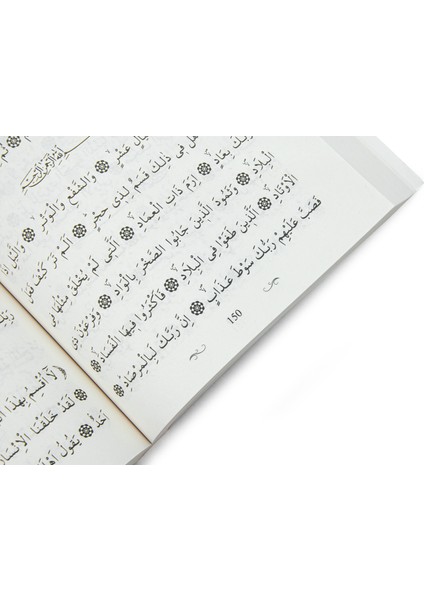 بِسْمِ اللّٰهِ الرَّحْمٰنِ الرَّحٖيمِ
لَيَالٍ عَشْرٍ ۞ وَالشَّفْعِ وَالْوَتْرِ ۞ وَالَّيْلِ
هَلْ فٖي ذٰلِكَ قَسَمٌ لِذٖي حِجْرٍ ۞ اَلَمْ تَرَ كَيْفَ فَعَلَ
رَبُّكَ بِعَادٍ ۞ اِرَمَ ذَاتِ الْعِمَادِ ۞ اَلَّتٖي لَمْ يُخْلَقْ مِثْلُهَا فِي
الْبِلَادِ ۞ وَثَمُودَ الَّذٖينَ جَابُوا الصَّخْرَ بِالْوَادِ ۞ وَفِرْعَوْنَ ذِي
الْاَوْتَادِ ۞ اَلَّذٖينَ طَغَوْا فِي الْبِلَادِ ۞ فَاَكْثَرُوا فٖيهَا الْفَسَادَ ۞
فَصَبَّ عَلَيْهِمْ رَبُّكَ سَوْطَ عَذَابٍ ۞ اِنَّ رَبَّكَ لَبِالْمِرْصَادِ ۞
150
لَا اُقْسِمُ بِهٰذَا
لَقَدْ خَلَقْنَا الْاِنْسَانَ
اَحَدٌ ۞ يَقُولُ